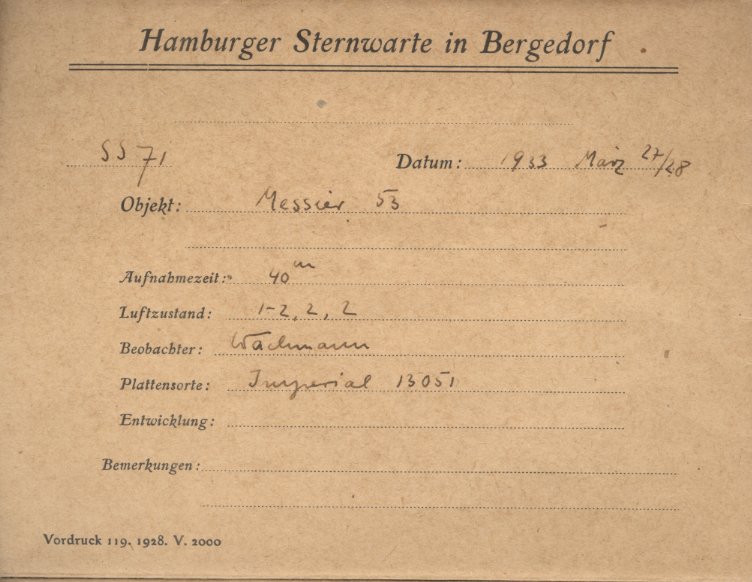 Hamburger Sternwarte in Bergedorf
SS 71 Datum: 1933 März 27/28
Objekt: Messier 53
Aufnahmezeit: 40m
Luftzustand: 1-2, 2, 2
Beobachter: Wachmann
Plattensorte: Imperial 13051
Entwicklung:
Bemerkungen:
Vordruck 119. 1928. V. 2000